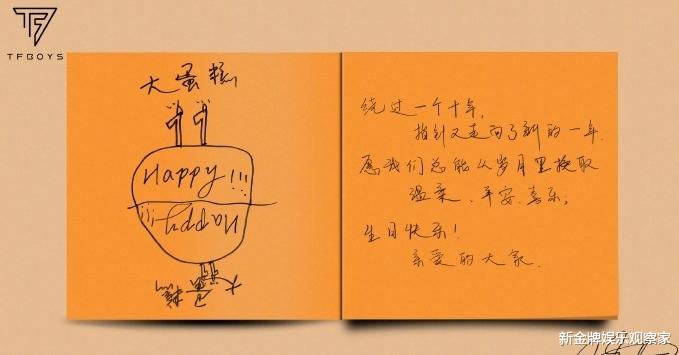 TFBOYS
大蛋糕
Happy!!!
Happy!!!
大蛋糕
绕过一个十年,
指针又走向了新的一年.
愿我们总能从岁月里换取
温柔、平安、喜乐;
生日快乐!
亲爱的大家.
新金牌娱乐观察家